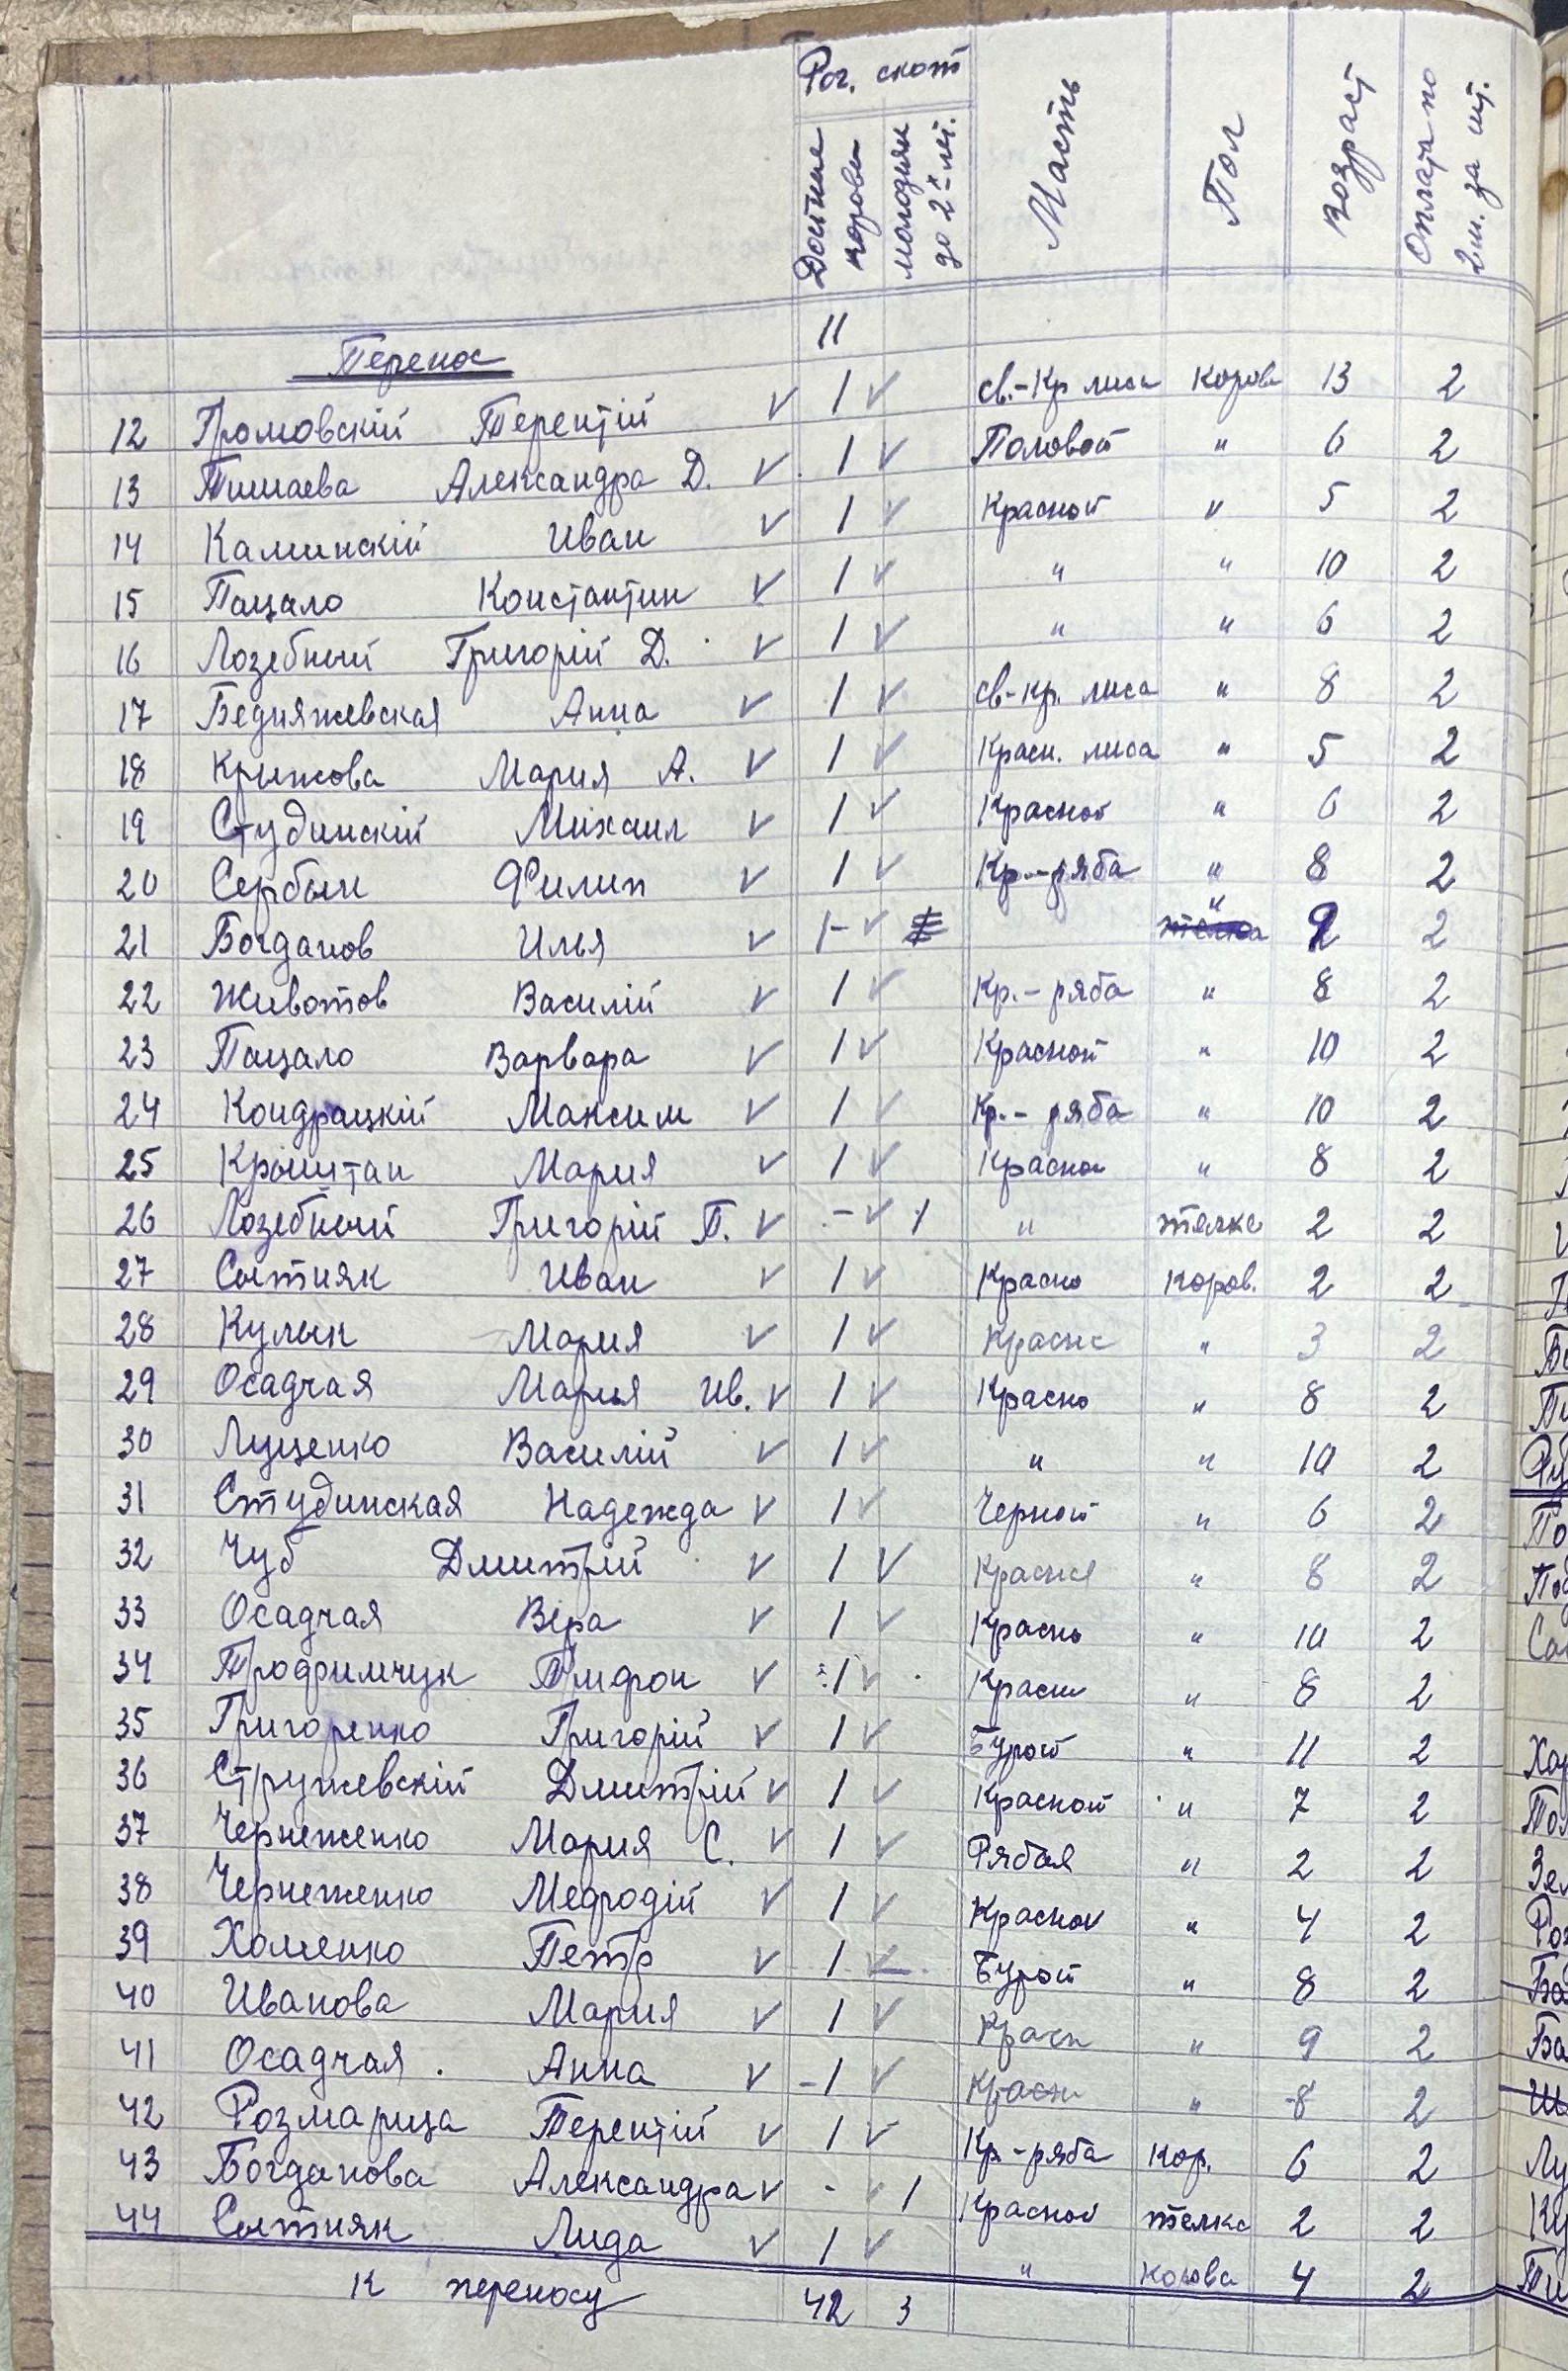 Рог. скот
Дойные коровы
молодняк до 2-х лет.
Масть
Пол
Возраст
Оплата по 2 м. за шт.
Перенос 11
12 Громовскій Терентій ✓ 1 ✓ св.-Кр лиса Корова 13 2
13 Тишаева Александра Д. ✓ 1 ✓ Половой " 6 2
14 Каминскій Иван ✓ 1 ✓ Красной " 5 2
15 Пацало Константин ✓ 1 ✓ " " 10 2
16 Лозебный Григорій Д. ✓ 1 ✓ " " 6 2
17 Бедняжевская Анна ✓ 1 ✓ св-кр. лиса " 8 2
18 Крыжова Мария А. ✓ 1 ✓ Красн. лиса " 5 2
19 Студинскій Михаил ✓ 1 ✓ Красной " 6 2
20 Сербын Филип ✓ 1 ✓ Кр.-ряба " 8 2
21 Богданов Илья ✓ 1- ✓ " 9 2
22 Животов Василій ✓ 1 ✓ Кр.-ряба " 8 2
23 Пацало Варвара ✓ 1 ✓ Красной " 10 2
24 Кондрацкій Максим ✓ 1 ✓ Кр.- ряба " 10 2
25 Мария ✓ 1 ✓ Красной " 8 2
26 Лозебный Григорій П. ✓ - ✓ 1 " телка 2 2
27 Сытняк Иван ✓ 1 ✓ Красно коров. 2 2
28 Кулык Мария ✓ 1 ✓ Красне " 3 2
29 Осадчая Марья Ив. ✓ 1 ✓ Красно " 8 2
30 Луценко Василій ✓ 1 ✓ " " 10 2
31 Студинская Надежда ✓ 1 ✓ Черной " 6 2
32 Чуб Дмитрій ✓ 1 ✓ Красня " 8 2
33 Осадчая Віра ✓ 1 ✓ Красно " 10 2
34 Трофимчук Трифон ✓ 1 ✓ Красн " 8 2
35 Григоренко Григорій ✓ 1 ✓ Бурой " 11 2
36 Стружевскій Дмитрій ✓ 1 ✓ Красной " 7 2
37 Чернеженко Мария С. ✓ 1 ✓ Рябая " 2 2
38 Чернеженко Мефодій ✓ 1 ✓ Красной " 4 2
39 Хоменко Петр ✓ 1 ✓ Бурой " 8 2
40 Иванова Мария ✓ 1 ✓ Красн " 9 2
41 Осадчая . Анна ✓ -1 ✓ Красн " 8 2
42 Розмарица Терентій ✓ 1 ✓ Кр.-ряба Кор. 6 2
43 Богданова Александра ✓ - ✓ 1 Красной телка 2 2
44 Сытняк Лида ✓ 1 ✓ " корова 4 2
К переносу 42 3